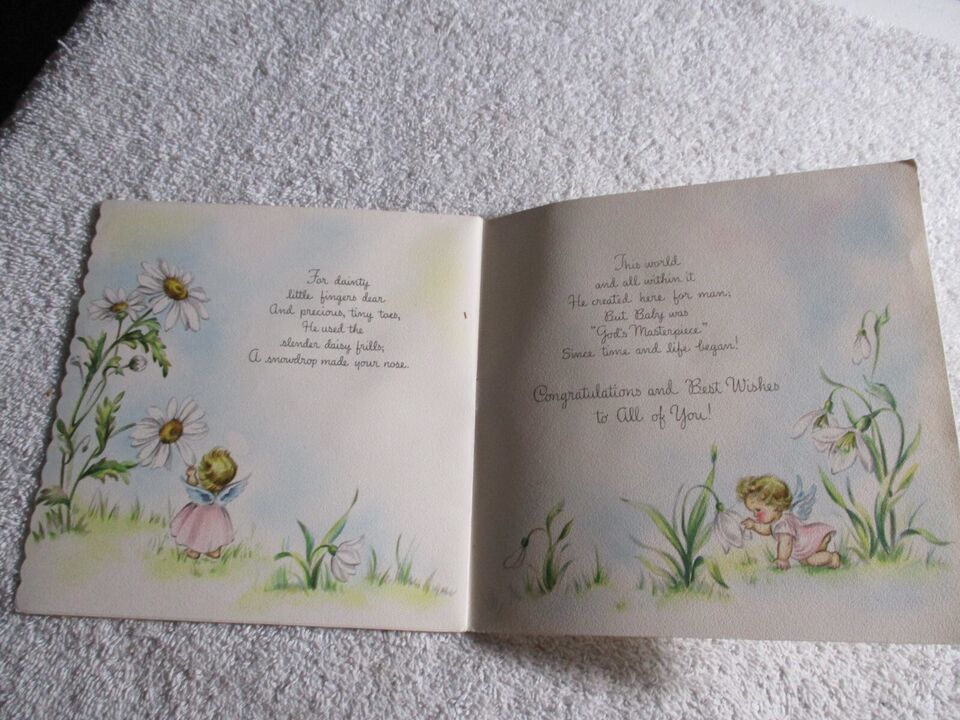 For dainty
little fingers dear
And precious, tiny toes,
He used the
slender daisy frills;
A snowdrop made your nose.
This world
and all within it
He created here for man;
But Baby was
"God's Masterpiece"
Since time and life began!
Congratulations and Best Wishes
to All of You!